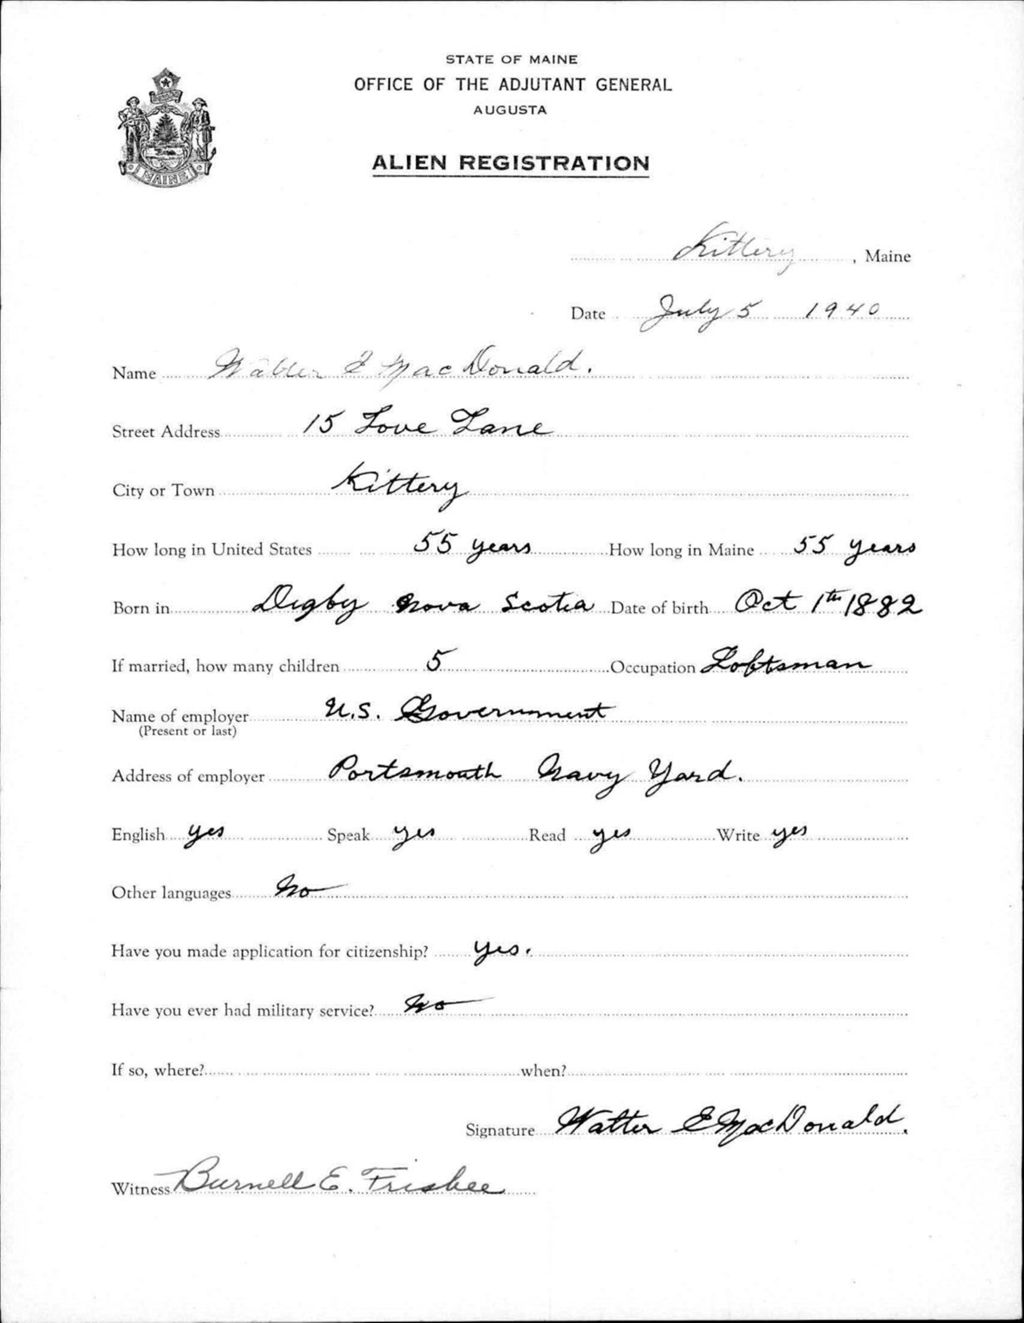 STATE OF MAINE
OFFICE OF THE ADJUTANT GENERAL
AUGUSTA
ALIEN REGISTRATION
MAINE
Kittery, Maine
Date July 5 1940
Name Walter E MacDonald.
Street Address 15 Love Lane
City or Town Kittery
How long in United States 55 years How long in Maine 55 years
Born in Digby Nova Scotia Date of birth Oct 1th 1882
If married, how many children 5 Occupation Loftsman
Name of employer U.S. Government
(Present or last)
Address of employer Portsmouth Navy Yard.
English yes Speak yes Read yes Write yes
Other languages No
Have you made application for citizenship? yes.
Have you ever had military service? No
If so, where? when?
Signature Walter E MacDonald.
Witness Burnell E. Frisbee